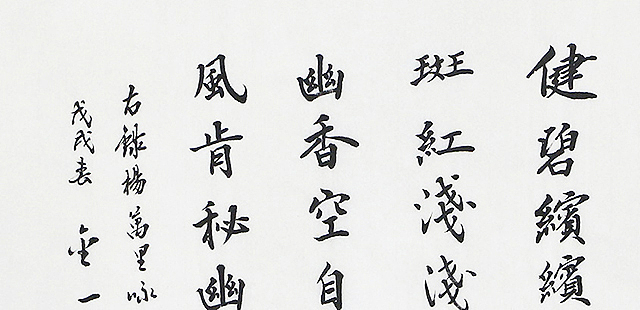 健碧繽繽
斑紅淺淺
幽香空自
風肯秘幽
右錄楊萬里詠
戊戌春 金一